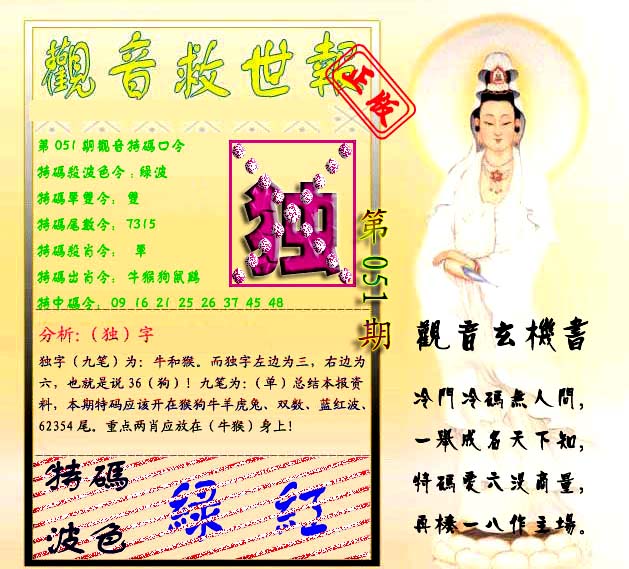 觀音救世報
正版
第051期觀音特碼口令
特碼殺波色令:綠波
特碼單雙令: 雙
特碼尾數令: 7315
特碼殺肖令: 單
特碼出肖令: 牛猴狗鼠鷄
特中碼令: 09 16 21 25 26 37 45 48
独
第051期
分析:(独)字
独字(九笔)为:牛和猴。而独字左边为三,右边为
六,也就是说36(狗)!九笔为:(单)总结本报资
料,本期特码应该开在猴狗牛羊虎兔、双数、蓝红波、
62354尾。重点两肖应放在(牛猴)身上!
特碼
波色
綠 紅
觀音玄機書
冷門冷碼無人問,
一舉成名天下知,
特碼愛六没商量,
再棲一八作主場。